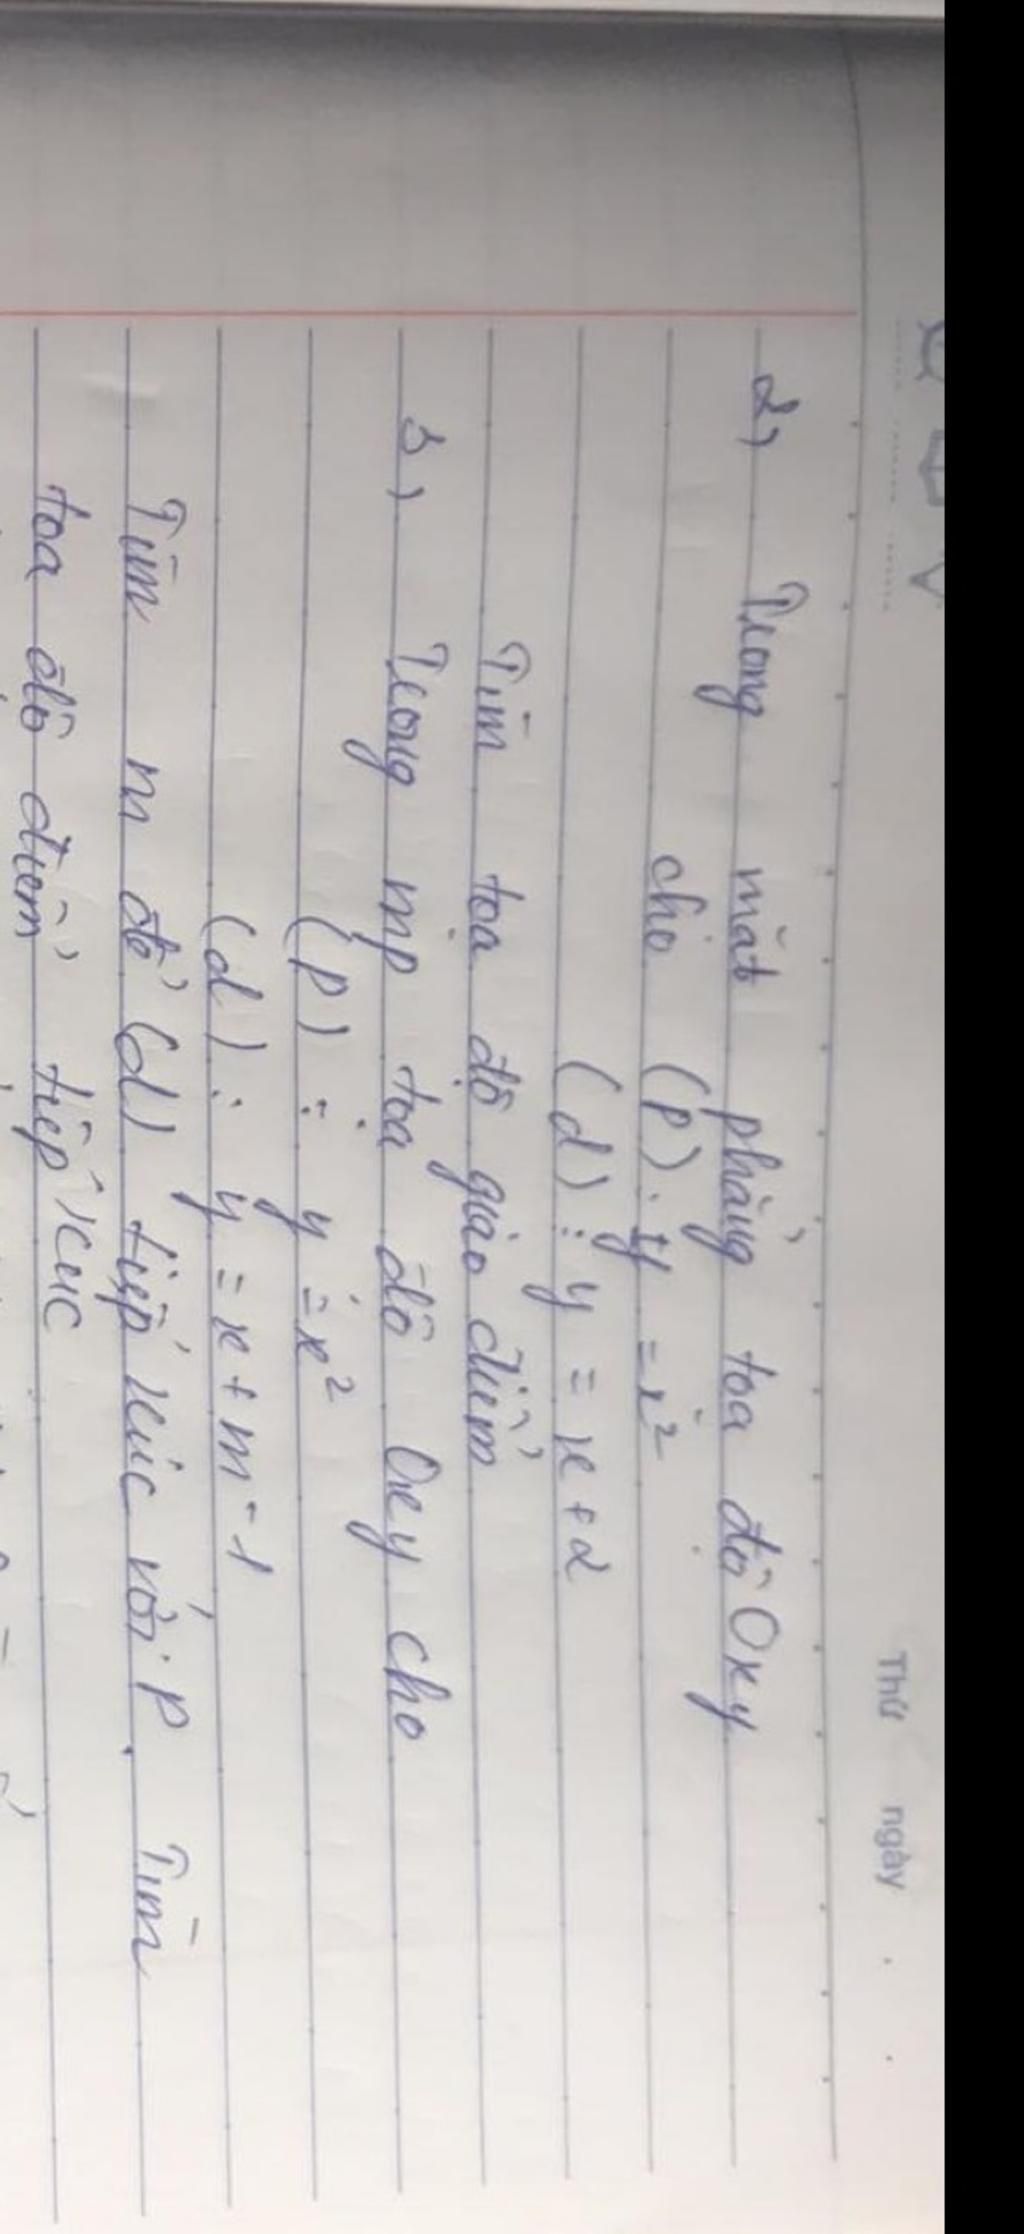 Thứ ngày
2) Trong mặt phẳng toạ độ Oxy
cho (P): y = x²
(d): y = x + 2
Tìm tọa độ giao điểm
3) Trong mp tọa độ Oxy cho
(P): y = x²
(d): y = x + m - 1
Tìm m để (d) tiếp xúc với P. Tìm
toạ độ điểm tiếp xúc